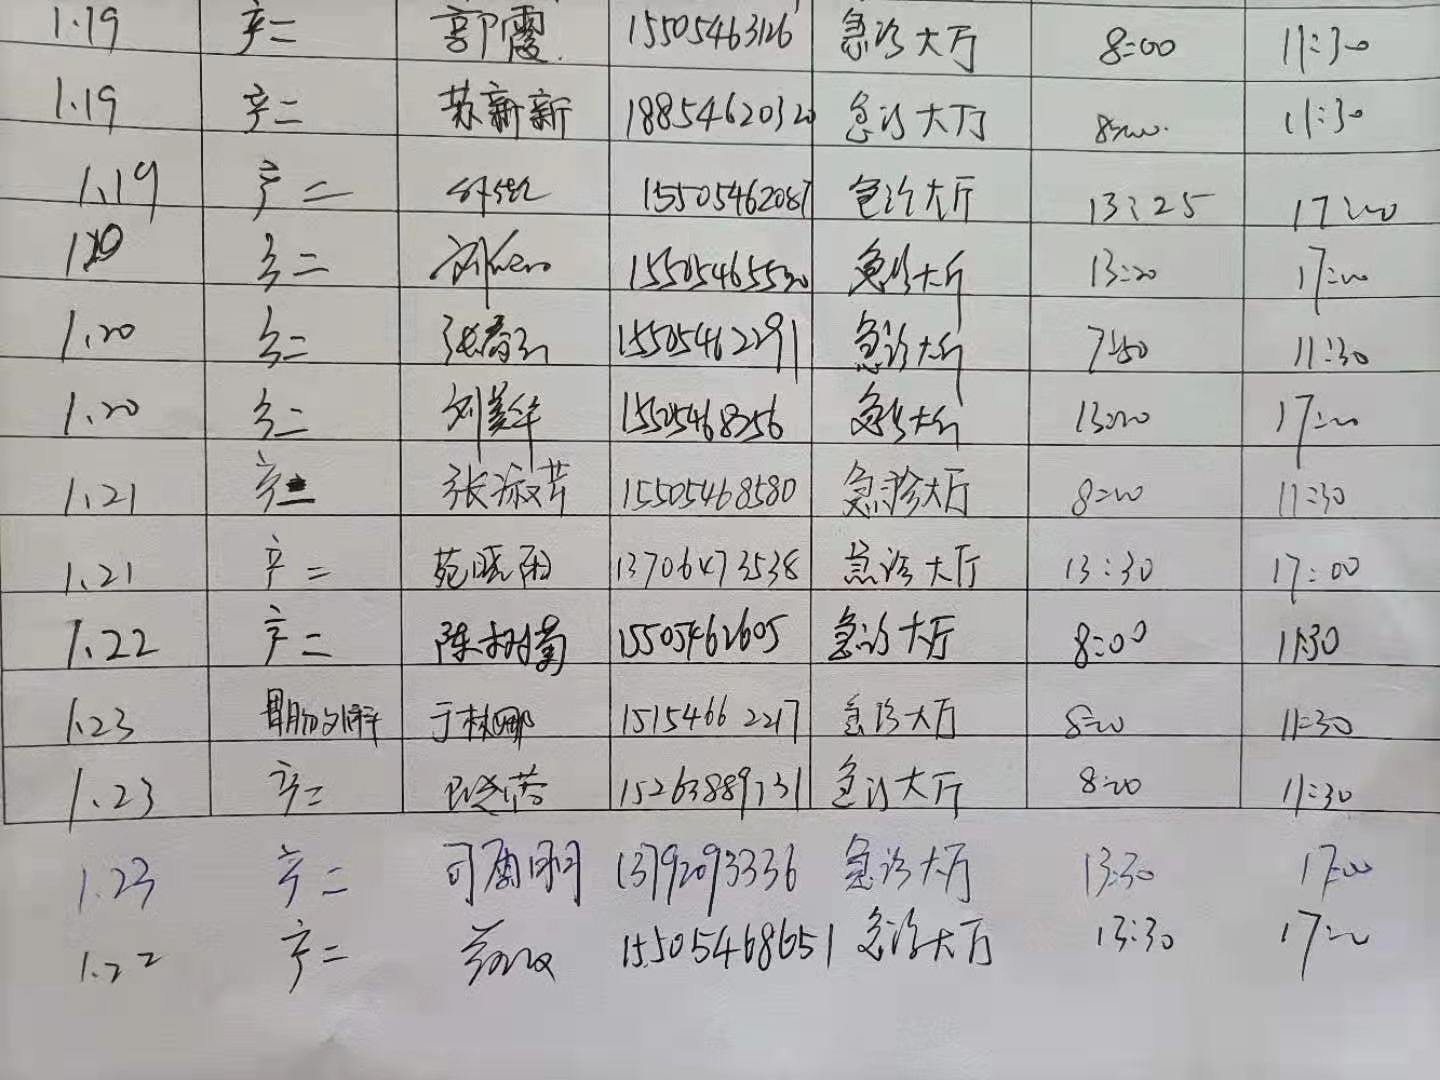 1.19 产二 郭霞 15505463126 急诊大厅 8:00 11:30
1.19 产二 苏新新 18854620320 急诊大厅 8:00 11:30
1.19 产二 15505462087 急诊大厅 13:25 17:00
产二 15505465530 急诊大厅 13:20 17:00
1.20 产二 15505462291 急诊大厅 7:50 11:30
1.20 产二 刘美华 15505468356 急诊大厅 13:20 17:00
1.21 产二 张淑芹 15505468580 急诊大厅 8:00 11:30
1.21 产二 苑晓雨 13706473538 急诊大厅 13:30 17:00
1.22 产二 陈树菊 15505462605 急诊大厅 8:00 11:30
1.23 于林娜 15154662217 急诊大厅 8:00 11:30
1.23 产二 15263889731 急诊大厅 8:00 11:30
1.23 产二 13792093336 急诊大厅 13:30 17:00
1.22 产二 15505468651 急诊大厅 13:30 17:00